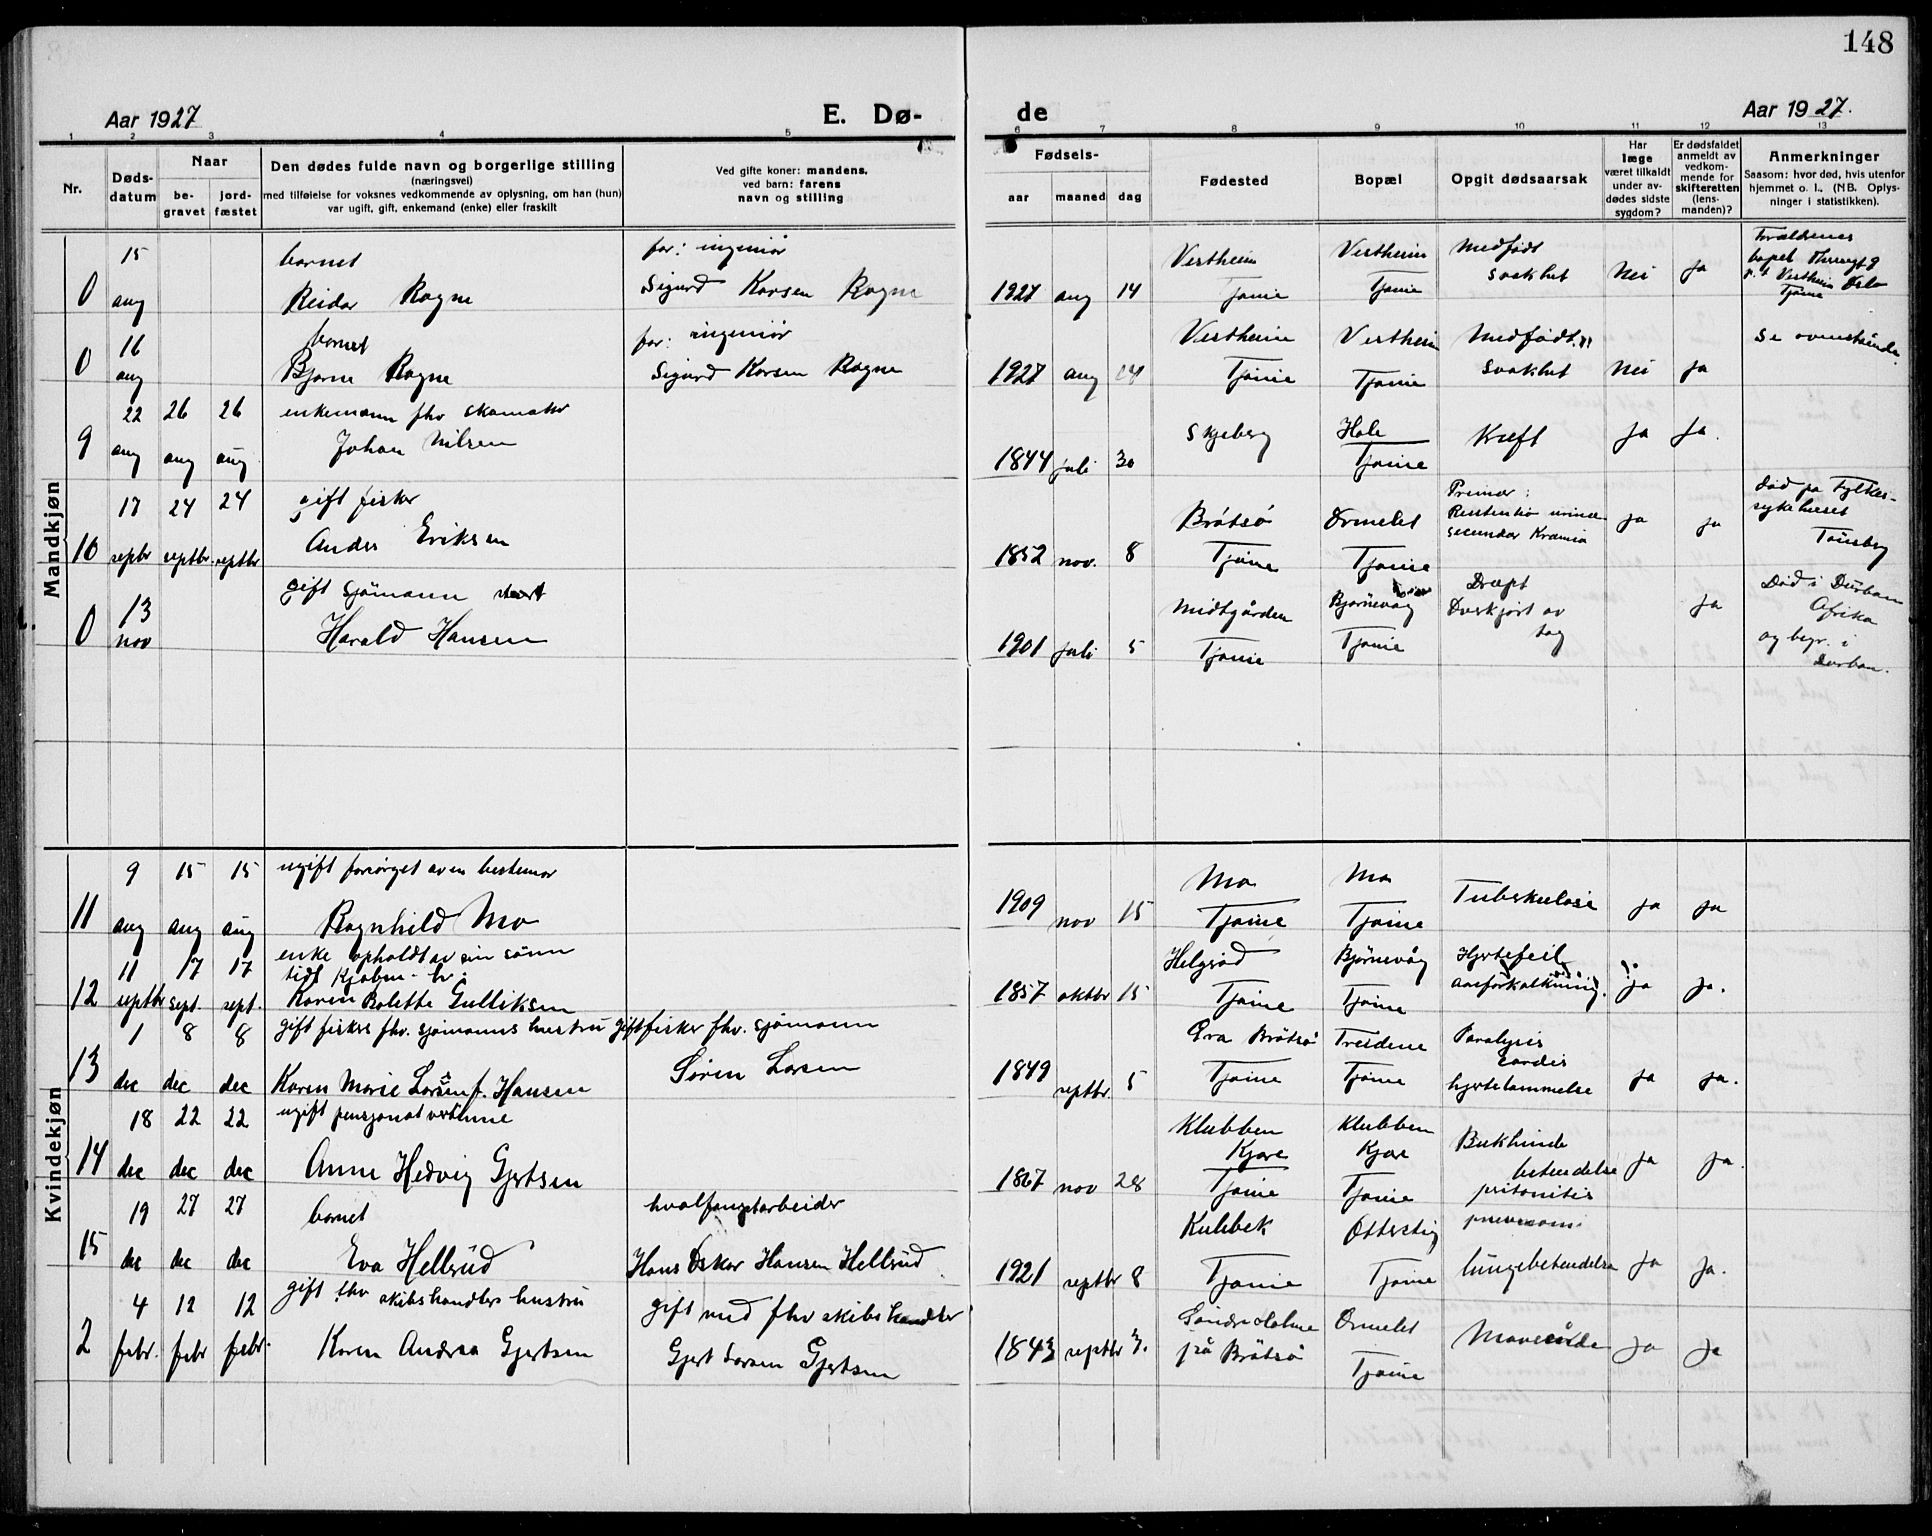 148
Aar 1927
E. Dø-
de
Aar 1927.
1 2 3 4 5 6 7 8 9 10 11 12 13
Nr.
Døds-
datum
Naar
be-
gravet
jord-
fæstet
Den dødes fulde navn og borgerlige stilling
(næringsvei)
med tilføielse for voksnes vedkommende av oplysning, om han (hun)
var ugift, gift, enkemand (enke) eller fraskilt
Ved gifte koner: mandens,
ved barn: farens
navn og stilling
Fødsels-
aar maaned dag
Fødested
Bopæl
Opgit dødsaarsak
Har
læge
været tilkaldt
under av-
dødes sidste
sygdom?
Er dødsfaldet
anmeldt av
vedkom-
mende for
skifteretten
(lens-
manden)?
Anmerkninger
Saasom: hvor død, hvis utenfor
hjemmet o. l., (NB. Oplys-
ninger i statistikken).
Mandkjøn
15 barnet far: ingeniør Vestheim Vestheim Medfødt Forældrenes
0 aug Reidar Rogne Sigurd Korsen Rogne 1927 aug 14 Tjøme Tjøme svakhet Nei Ja
bopel
Vestheim Oslo
Tjøme
16 barnet far: ingeniør Vestheim Vestheim Medfødt Se ovenstående
0 aug Bjarne Rogne Sigurd Korsen Rogne 1927 aug 14 Tjøme Tjøme svakhet Nei Ja
22 26 26 enkemann fhv skomaker Skjeberg Hole Kreft Ja Ja.
9 aug aug aug Johan Nilsen 1844 juli 30 Tjøme
17 24 24 gift fisker Brøtsø Ormelet Primær: Død på Fylkes-
sykehuset
10 septbr septbr. septbr Anders Eriksen 1852 nov. 8 Tjøme Tjøme secundær ja ja Tønsberg
13 gift sjømann Midtgården Bjørnevåg Dræpt Død i Durban
Overkjørt av Ja Afrika
0 nov Harald Hansen 1901 juli 5 Tjøme Tjøme tog og begr. i
Durban.
Kvindekjøn
9 15 15 ugift forsørget av en bestemor Mo Mo Tuberkulose ja ja
11 aug aug aug Ragnhild Mo 1909 nov 15 Tjøme Tjøme
11 17 17 enke opholdt av sin sønn Helgerød Bjørnevåg Hjertefeil
12 septbr sept. sept. Karen Bolette Gulliksen 1857 oktbr 15 Tjøme Tjøme aareforkalkning. ja ja.
1 8 8 gift fisker fhv. sjømanns hustru gift fisker fhv. sjømann Brøtsø Treidene Paralysis
cordis
13 dec dec dec Karen Marie Larsen f. Hansen Søren Larsen 1849 septbr. 5 Tjøme Tjøme hjertelammelse ja ja.
18 22 22 ugift pensjonat vertinne Klubben Klubben Bukhinde
Kjære Kjære betendelse ja ja.
14 dec dec dec Anne Hedvig Gjertsen 1867 nov 28 Tjøme Tjøme pritonitis
19 27 27 barnet hvalfangstarbeider Kubbek Otterstig
15 dec dec dec Eva Hellerud Hans Oskar Hansen Hellerud 1921 septbr 8 Tjøme Tjøme lungebetendelse ja ja.
4 12 12 gift fhv skibshandlers hustru gift med fhv skibshandler Søndre Holme Ormelet Mavesår ja ja
2 febr. febr febr. Karen Andrea Gjertsen Gjert Larsen Gjertsen 1843 septbr 3. på Brøtsø Tjøme